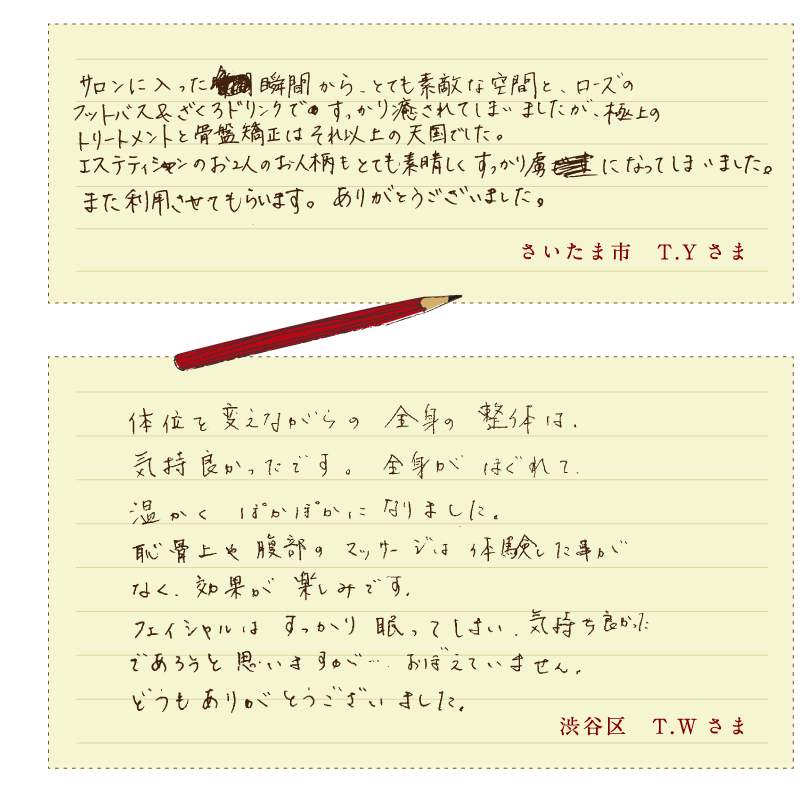 サロンに入った瞬間から、とても素敵な空間と、ローズの
フットバス&ざくろドリンクですっかり癒されてしまいましたが、極上の
トリートメントと骨盤矯正はそれ以上の天国でした。
エステティシャンのお2人のお人柄もとても素晴しくすっかり虜になってしまいました。
また利用させてもらいます。ありがとうございました。
さいたま市 T.Yさま
体位を変えながらの全身の整体は、
気持良かったです。全身がほぐれて、
温かくぽかぽかになりました。
恥骨上や腹部のマッサージは体験した事が
なく、効果が楽しみです。
フェイシャルはすっかり眠ってしまい、気持ち良かった
であろうと思いますが… おぼえていません。
どうもありがとうございました。
渋谷区 T.Wさま